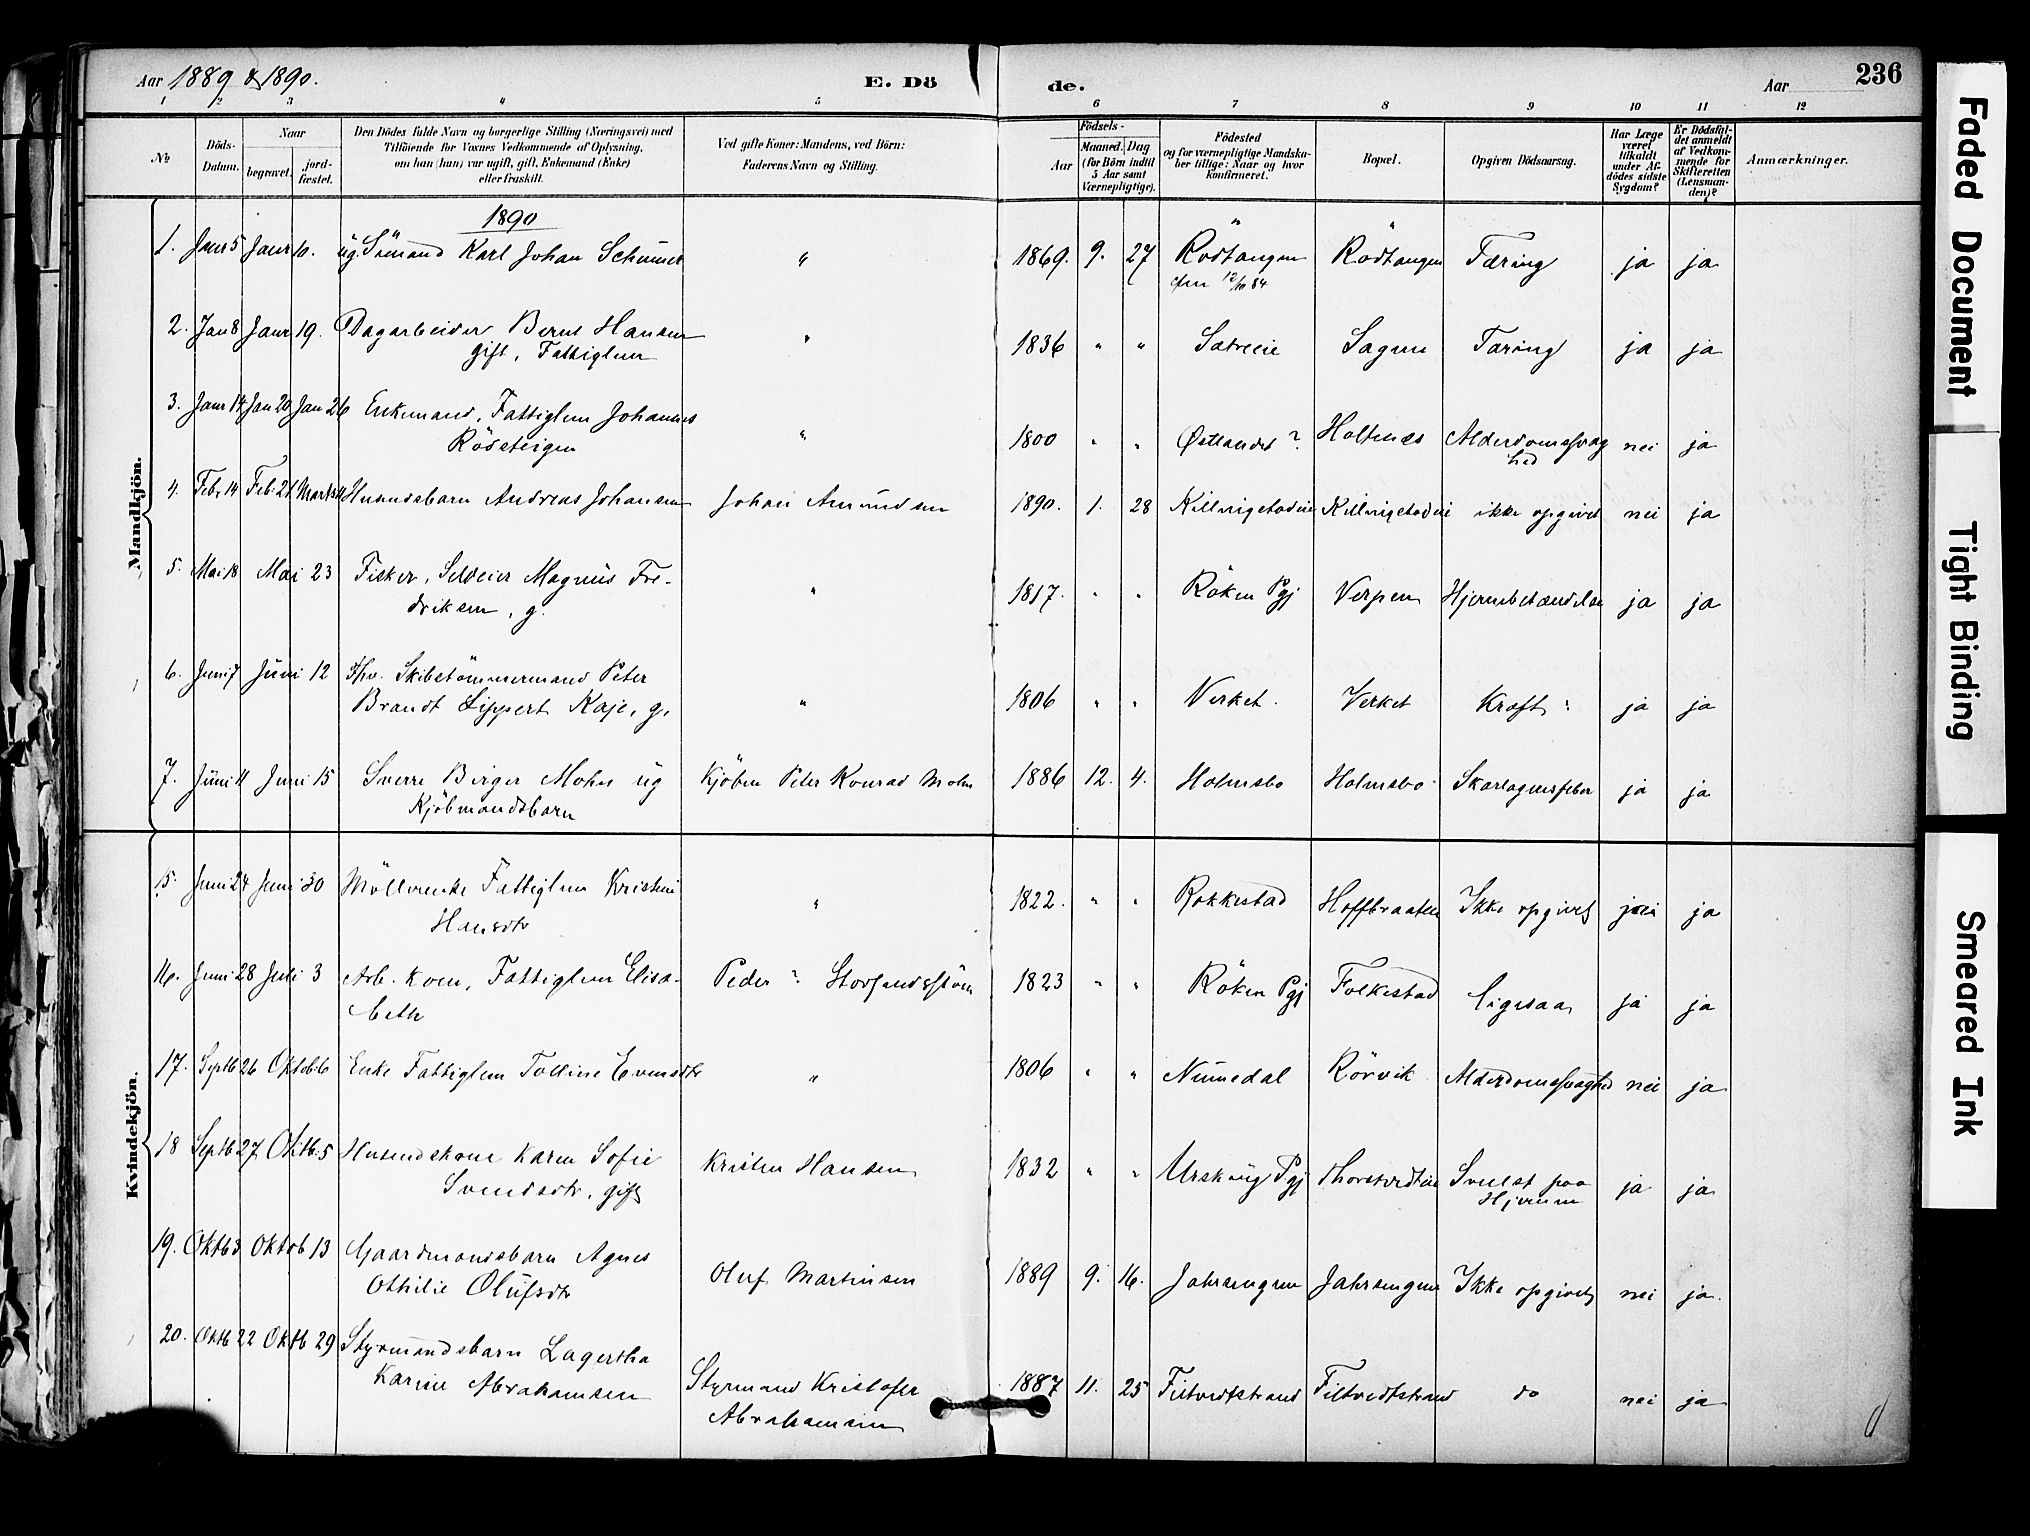 Aar 1889 & 1890.
E. Dö
de.
Aar
236
1 2 3 4 5 6 7 8 9 10 11 12
No
Döds-
Datum.
Naar
begravet.
jord-
fæstet.
Den Dödes fulde Navn og borgerlige Stilling (Næringsvei) med
Tilföiende for Voxnes Vedkommende af Oplysning,
om han (hun) var ugift, gift, Enkemand (Enke)
eller fraskilt.
Ved gifte Koner: Mandens, ved Börn:
Faderens Navn og Stilling.
Födsels-
Aar
Maaned.
Dag
(for Börn indtil
5 Aar samt
Værnepligtige).
Födested
og for værnepligtige Mandska-
ber tillige: Naar og hvor
konfirmeret.
Bopæl.
Opgiven Dödsaarsag.
Har Læge
været
tilkaldt
under Af-
dödes sidste
Sygdom?
Er Dödsfal-
det anmeldt
af Vedkom-
mende for
Skifteretten
(Lensman-
den)?
Anmærkninger.
Mandkjön.
1890
1. Janr 5 Janr 10. ug. Sömand Karl Johan " 1869. 9. 27 Rödtangen Rödtangen Tæring ja ja
cfm 12/10 84
2. Jan 8 Janr 19. Dagarbeider Bernt Hansen " 1836 " " Sætreeie Sagene Tæring ja ja
gift, Fattiglem
3. Janr 14 Jan 20 Jan 26 Enkemand, Fattiglem Johannes
Rödsteigen " 1800 " " Østlandet ? Holtnes Alderdomssvag nei ja
hed
4. Febr 14 Feb. 21 Husmdsbarn Andreas Johansen Johan Amundsen 1890. 1. 28 ikke opgivet nei ja
5. Mai 18 Mai 23 Fisker, Selveier Magnus Fre- " 1817. " " Röken Pgj Verpen Hjernebetændelse ja ja
driksen, g.
6. Juni 7 Juni 12 Fhv. Skibstömmermand Peter
Brandt Lippert Kaje, g. " 1806 " " Verket. Verket Kræft ja ja
7. Juni 11 Juni 15 Sverre Birger Mohn ug Kjöbm Peter Konrad Mohn 1886 12. 4. Holmsbo Holmsbo Skarlagensfeber ja ja
Kjöbmandsbarn
Kvindekjön.
15. Juni 24 Juni 30 Möllerenke Fattiglem Kristine " 1822. " " Rakkestad Hoffbraaten Ikke opgivet nei ja
Hansdtr
16. Juni 28 Juli 3 Arb. Kone, Fattiglem Elisa- Peder ? 1823 " " Röken Pgj Folkestad ligesaa ja ja
beth
17. Septb 26 Oktob. 6 Enke Fattiglem Tolline Evensdtr " 1806 " " Numedal Rörvik Alderdomssvaghed nei ja
18 Septb 27 Oktb. 5 Husmdskone Karen Sofie Kristen Hansen 1832 " " Urskoug Pgj Svulst paa ja ja
Svendsdtr, gift Hjernen
19. Oktb 3 Oktob 13 Gaardmandsbarn Agnes Oluf Martinsen 1889 9. 16. Jahrsengen Jahrsengen Ikke opgivet nei ja.
Othilie Olufsdtr
20. Oktb 22 Oktb 29 Styrmandsbarn Lagertha
Karine Abrahamsen Styrmand Kristofer 1887 11. 25 Filtvedtstrand Filtvedtstrand do nei ja
Abrahamsen
Faded Document
Tight Binding
Smeared Ink